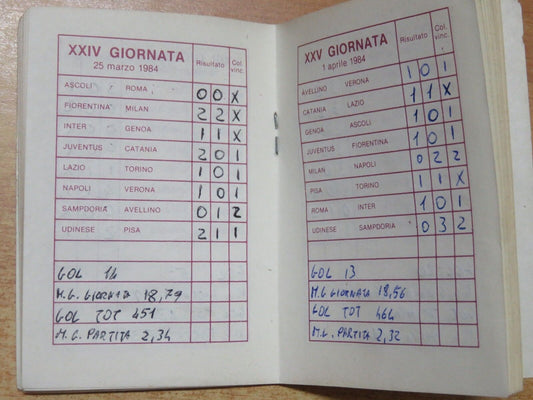 XXIV GIORNATA Risultato Col. vinc.
25 marzo 1984
ASCOLI ROMA 0 0 X
FIORENTINA MILAN 2 2 X
INTER GENOA 1 1 X
JUVENTUS CATANIA 2 0 1
LAZIO TORINO 1 0 1
NAPOLI VERONA 1 0 1
SAMPDORIA AVELLINO 0 1 2
UDINESE PISA 2 1 1
GOL 14
M.G. GIORNATA 18,79
GOL TOT 451
M.G. PARTITA 2,34
XXV GIORNATA Risultato Col. vinc.
1 aprile 1984
AVELLINO VERONA 1 0 1
CATANIA LAZIO 1 1 X
GENOA ASCOLI 1 0 1
JUVENTUS FIORENTINA 1 0 1
MILAN NAPOLI 0 2 2
PISA TORINO 1 1 X
ROMA INTER 1 0 1
UDINESE SAMPDORIA 0 3 2
GOL 13
M.G. GIORNATA 18,56
GOL TOT 464
M.G. PARTITA 2,32